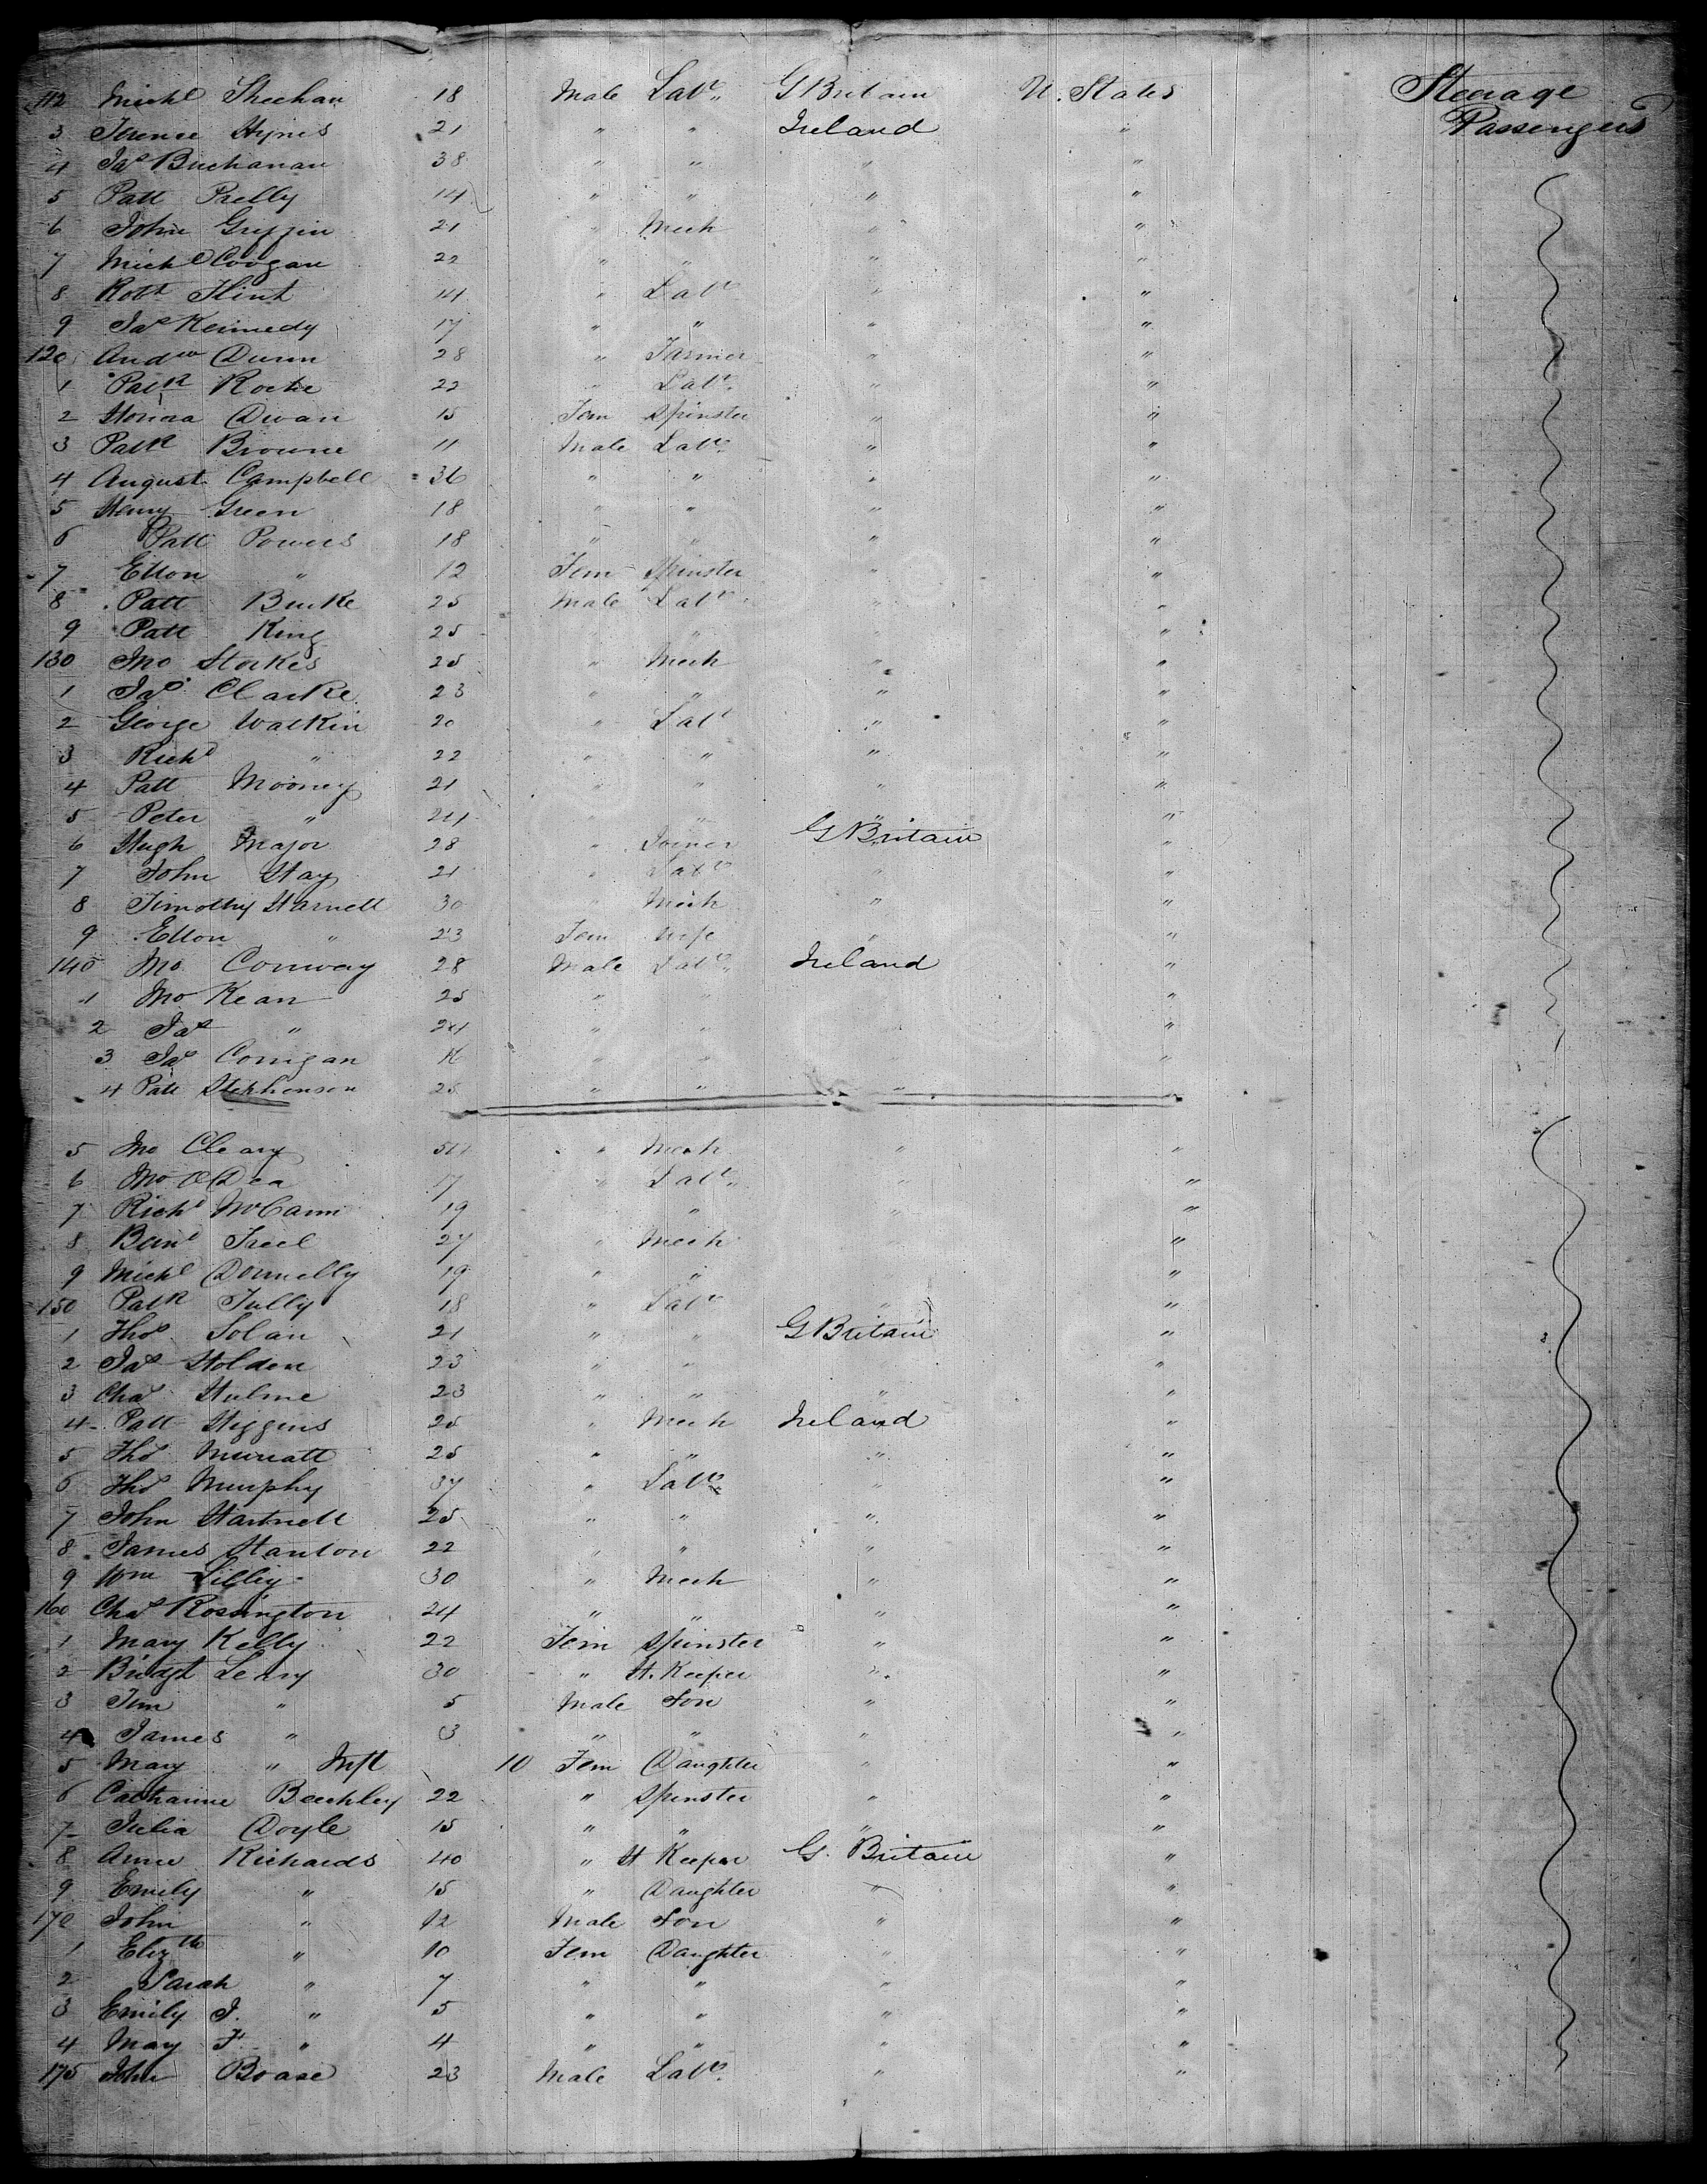 112 Michl Sheehan 18 Male Labr G Britain U. States Steerage
3 Terence Hynes 21 " " Ireland " Passengers
4 Jas Buchanan 38 " " " "
5 Patt 14 " " " "
6 John Griffin 21 " Mech " "
7 Michl Coogan 22 " " " "
8 Robt Flint 14 " Labr " "
9 Jas Kennedy 17 " " " "
120 Andw Dunn 28 " Farmer " "
1 Patk Roche 22 " Labr " "
2 Honora Dwan 15 Fem Spinster " "
3 Patk Browne 11 Male Labr " "
4 August Campbell 36 " " " "
5 Henry Green 18 " " " "
6 Patt Powers 18 " " " "
7 Ellen " 12 Fem Spinster " "
8 Patt Burke 25 Male Labr " "
9 Patt King 25 " " " "
130 Jno Stokes 25 " Mech " "
1 Jas Clarke 23 " " " "
2 George Watkin 20 " Labr " "
3 Richd " 22 " " " "
4 Patt Mooney 21 " " " "
5 Peter " 24 " " " "
6 Hugh Major 28 " Joiner G Britain "
7 John Hay 21 " Labr " "
8 Timothy Harnett 30 " Mech " "
9 Ellen " 23 Fem Wife " "
140 Jno Conway 28 Male Labr Ireland "
1 Jno Kean 25 " " "
2 Jas " 24 " " "
3 Jas Corrigan 16 " " "
4 Patt Stephenson 25 " " " "
5 Jno Cleary " Mech " "
6 Jno O'Dea 17 " Labr " "
7 Richd McCann 19 " " " "
8 Bernd Freel 27 " Mech "
9 Michl Donnelly 19 " " "
150 Patk Tully 18 " Labr " "
1 Thos Solan 21 " " G Britain "
2 Jas Holden 23 " " "
3 Chas Hulme 23 " " " "
4 Patt Higgins 25 " Mech Ireland "
5 Thos 25 " " " "
6 Thos Murphy 37 " Labr " "
7 John Hartnett 25 " " " "
8 James Hanlon 22 " " " "
9 Wm Lilley 30 " Mech " "
160 Chas Rossington 24 " " " "
1 Mary Kelly 22 Fem Spinster " "
2 Bridgt Leary 30 " H. Keeper " "
3 Tim " 5 Male Son " "
4 James " 3 " " " "
5 Mary " Inft 10 Fem Daughter " "
6 Catharine 22 " Spinster " "
7 Julia Doyle 15 " " " "
8 Anne Richards 40 " H Keeper G. Britain "
9 Emily " 15 " Daughter " "
170 John " 12 Male Son " "
1 Elizth " 10 Fem Daughter " "
2 Sarah " 7 " " " "
3 Emily J. " 5 " " " "
4 Mary F. " 4 " " " "
175 John Boase 23 Male Labr " "